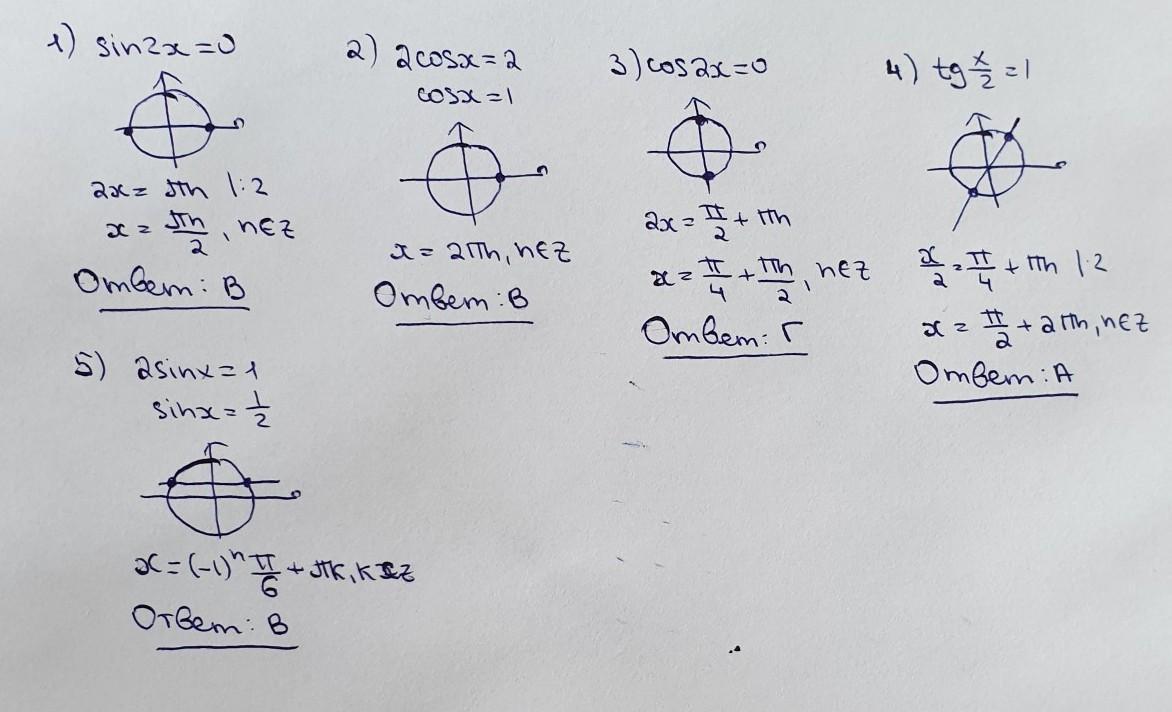 1) sin2x=0
2x= πn |:2
x = πn/2, n∈Z
Ответ: В
2) 2cosx=2
cosx=1
x = 2πn, n∈Z
Ответ: В
3) cos2x=0
2x = π/2 + πn
x = π/4 + πn/2, n∈Z
Ответ: Г
4) tg x/2 =1
x/2 = π/4 + πn |·2
x = π/2 + 2πn, n∈Z
Ответ: А
5) 2sinx=1
sinx=1/2
x=(-1)ⁿ π/6 + πk, k∈Z
Ответ: В